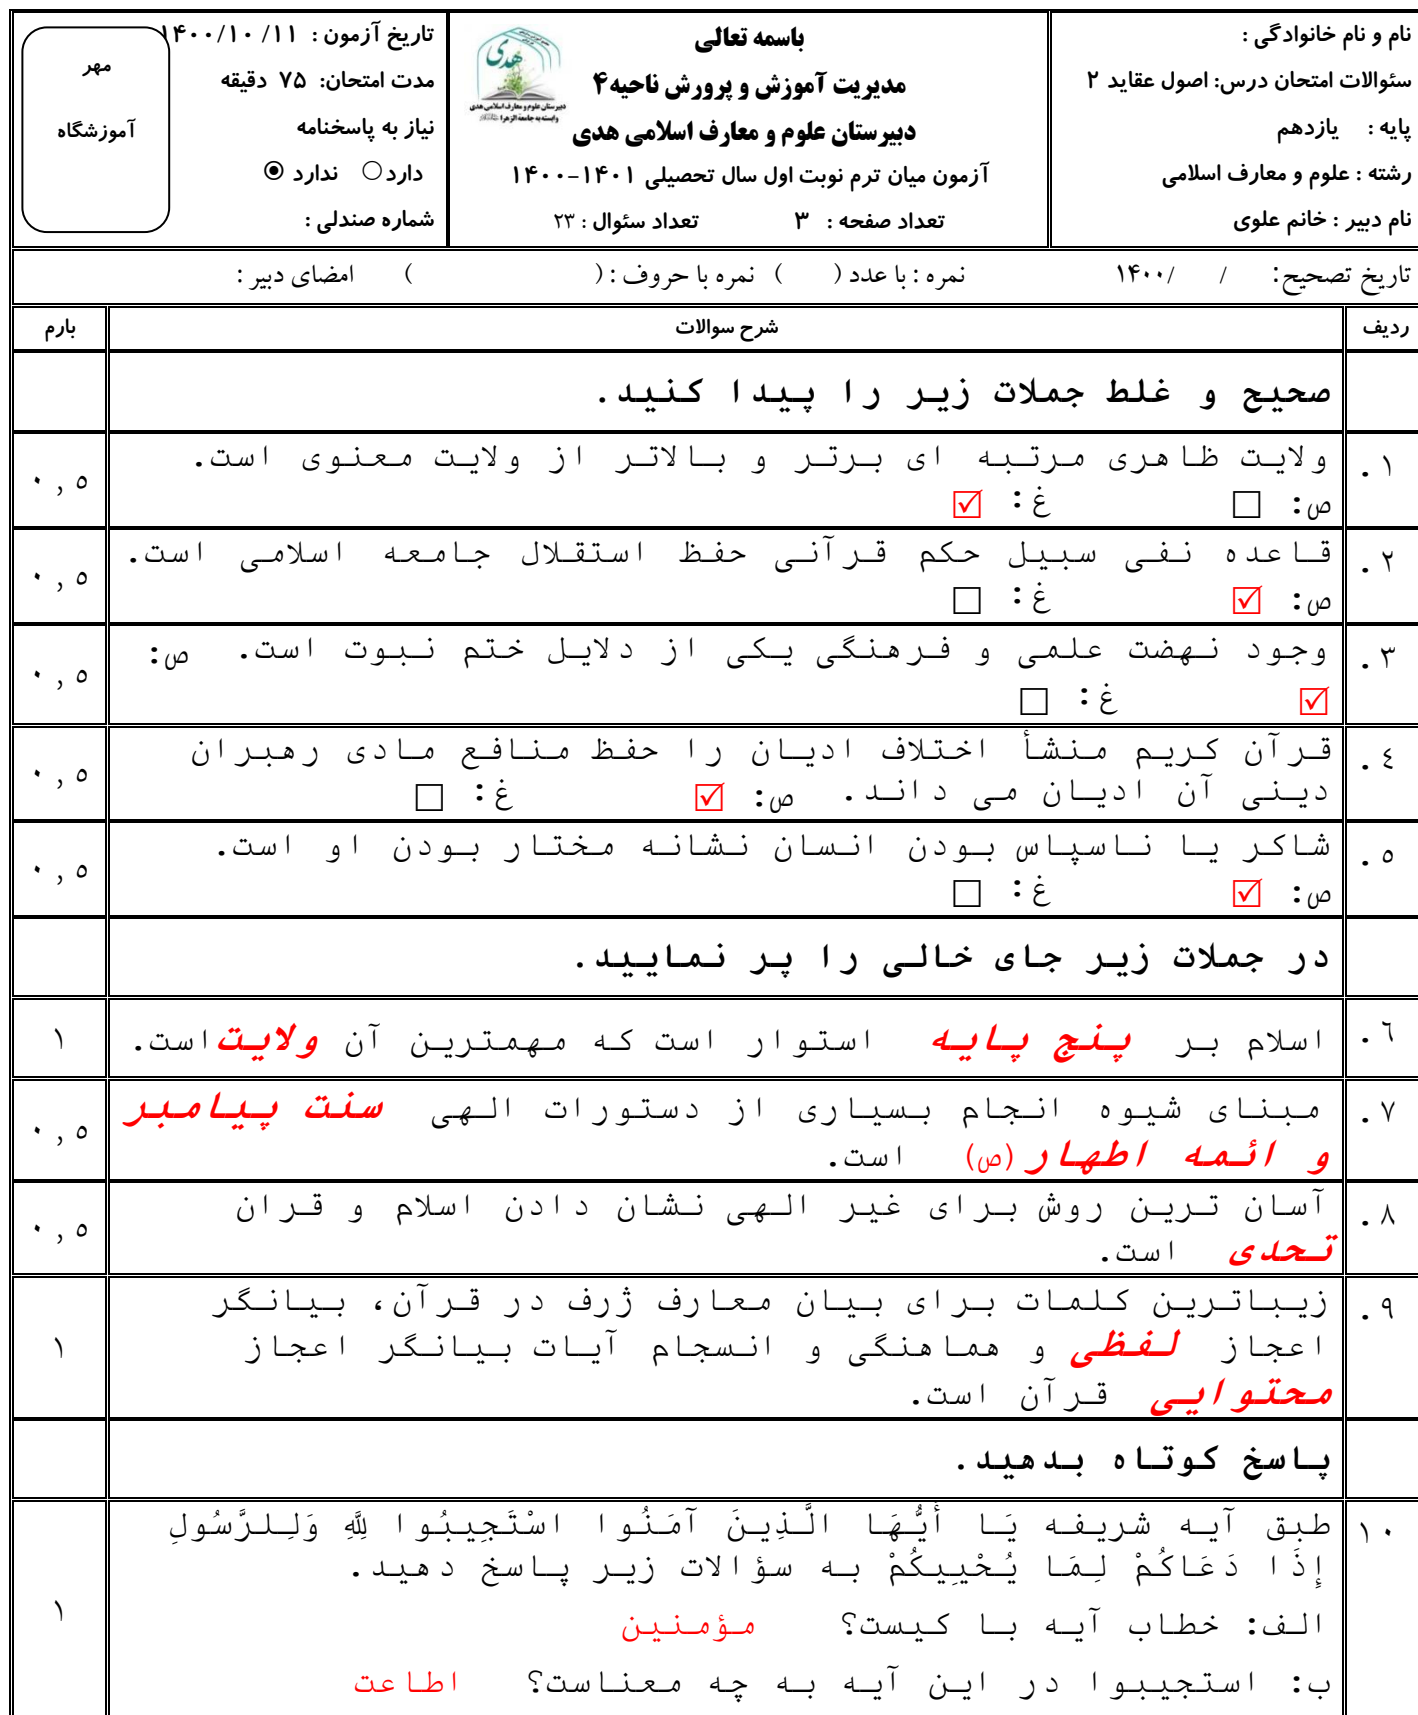 نام و نام خانوادگی :
سئوالات امتحان درس: اصول عقاید ۲
پایه : یازدهم
رشته : علوم و معارف اسلامی
نام دبیر : خانم علوی
باسمه تعالی
مدیریت آموزش و پرورش ناحیه۴
دبیرستان علوم و معارف اسلامی هدی
آزمون میان ترم نوبت اول سال تحصیلی ۱۴۰۱-۱۴۰۰
تعداد صفحه : ۳ تعداد سئوال : ۲۳
هدی
دبیرستان علوم و معارف اسلامی هدی
وابسته به جامعة الزهرا
تاریخ آزمون : ۱۱/ ۱۴۰۰/۱۰
مدت امتحان: ۷۵ دقیقه
نیاز به پاسخنامه
دارد○ ندارد ◉
شماره صندلی :
مهر
آموزشگاه
تاریخ تصحیح: / /۱۴۰۰ نمره : با عدد ( ) نمره با حروف : ( ) امضای دبیر :
ردیف شرح سوالات بارم
صحیح و غلط جملات زیر را پیدا کنید.
۱. ولایت ظاهری مرتبه ای برتر و بالاتر از ولایت معنوی است.
ص: ☐ غ: ☑ ۰,۵
۲. قاعده نفی سبیل حکم قرآنی حفظ استقلال جامعه اسلامی است.
ص: ☑ غ: ☐ ۰,۵
۳. وجود نهضت علمی و فرهنگی یکی از دلایل ختم نبوت است. ص:
☑ غ: ☐ ۰,۵
٤. قرآن کریم منشأ اختلاف ادیان را حفظ منافع مادی رهبران
دینی آن ادیان می داند. ص: ☑ غ: ☐ ۰,۵
۵. شاکر یا ناسپاس بودن انسان نشانه مختار بودن او است.
ص: ☑ غ: ☐ ۰,۵
در جملات زیر جای خالی را پر نمایید.
٦. اسلام بر پنج پایه استوار است که مهمترین آن ولایت است. ۱
۷. مبنای شیوه انجام بسیاری از دستورات الهی سنت پیامبر
و ائمه اطهار (ص) است. ۰,۵
۸. آسان ترین روش برای غیر الهی نشان دادن اسلام و قران
تحدی است. ۰,۵
۹. زیباترین کلمات برای بیان معارف ژرف در قرآن، بیانگر
اعجاز لفظی و هماهنگی و انسجام آیات بیانگر اعجاز
محتوایی قرآن است. ۱
پاسخ کوتاه بدهید.
۱۰ طبق آیه شریفه یَا أَیُّهَا الَّذِینَ آمَنُوا اسْتَجِیبُوا لِلَّهِ وَلِلرَّسُولِ
إِذَا دَعَاکُمْ لِمَا یُحْیِیکُمْ به سؤالات زیر پاسخ دهید.
الف: خطاب آیه با کیست؟ مؤمنین
ب: استجیبوا در این آیه به چه معناست؟ اطاعت
۱